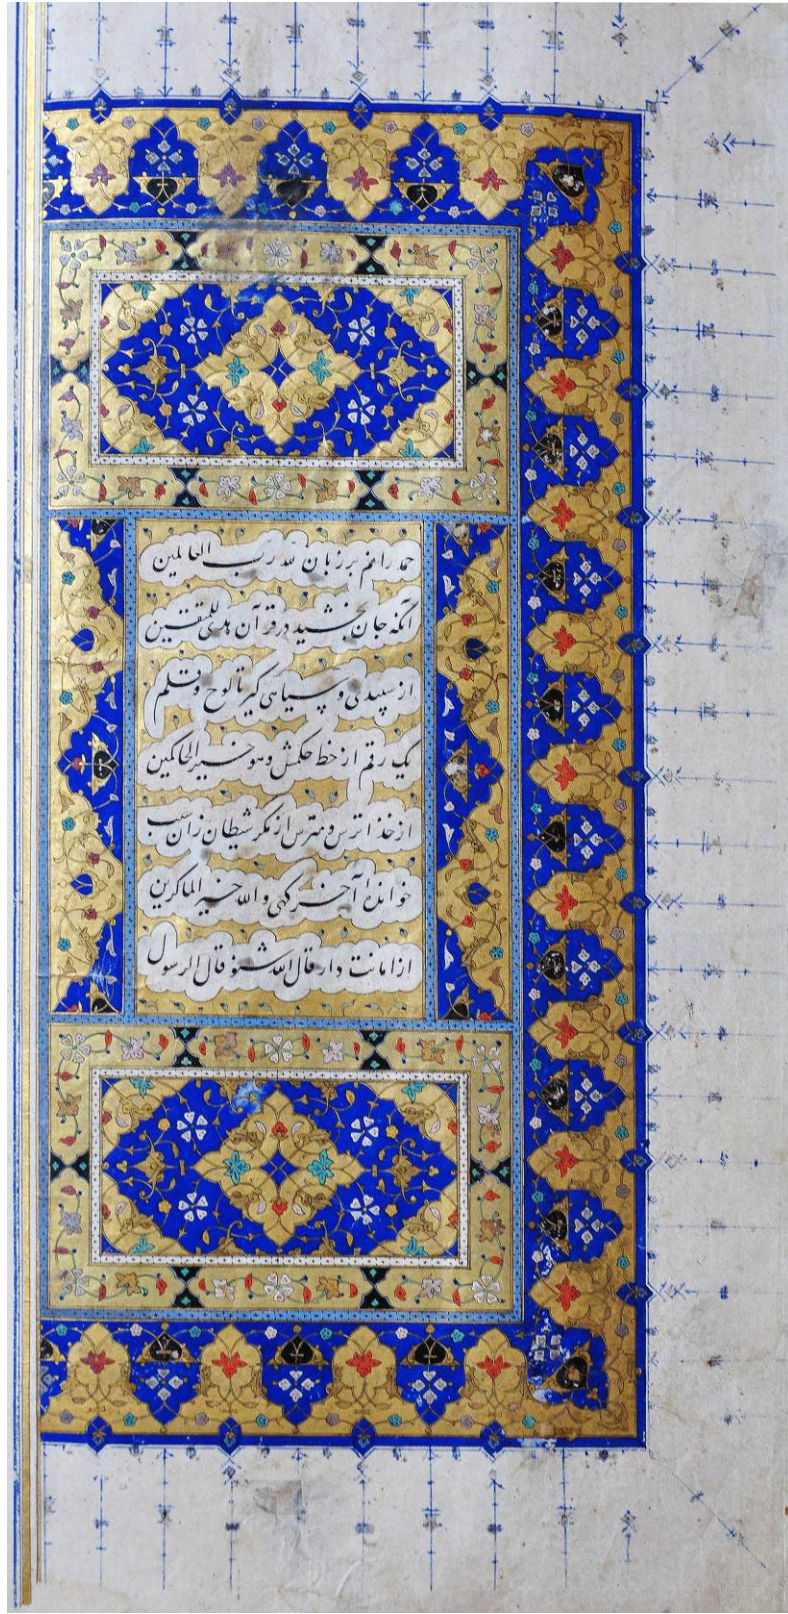 حمد رانم بر زبان لله رب العالمین
آنکه جان بخشید در قرآن هدی للمتقین
از سپیدی و سیاهی گیر تا لوح و قلم
یک رقم از خط حکمش وهو خیر الحاکمین
از خدا ترس و مترس از مکر شیطان زان سبب
خوانده آخر گهی والله خیر الماکرین
از امانت دار قال الله شنو قال الرسول